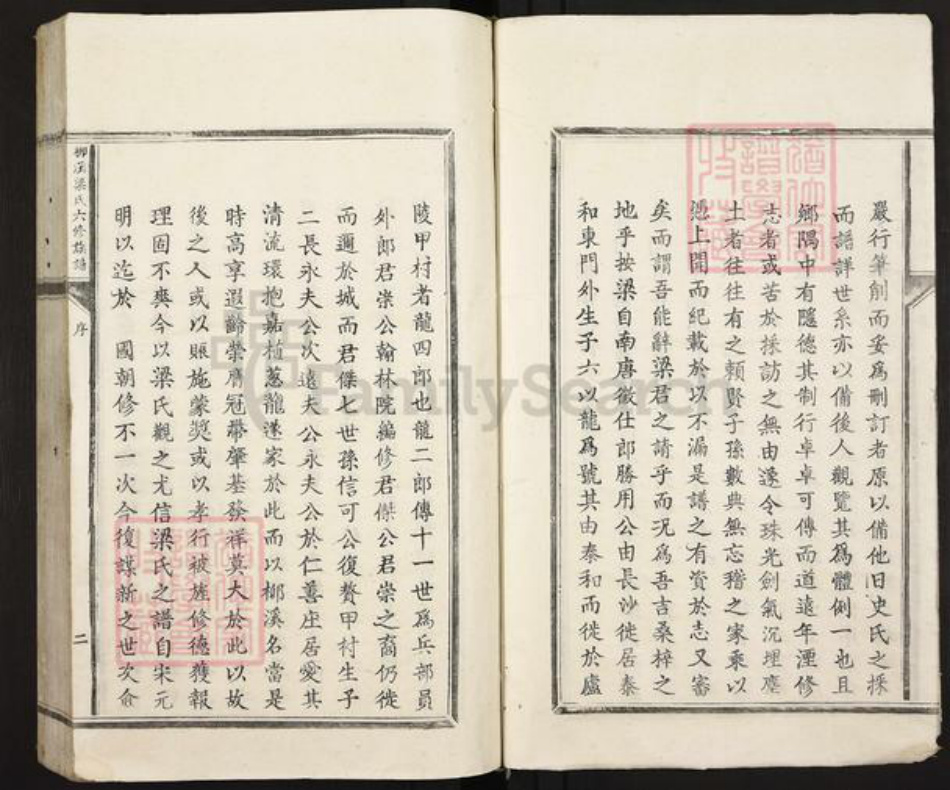 嚴行筆削而妥爲刪訂者原以備他日史氏之採
而譜詳世系亦以備後人觀覽其爲體例一也且
鄉隅中有隱德其制行卓卓可傳而道遠年湮修
志者或苦於採訪之無由遂令珠光劍氣沉埋塵
土者往往有之賴賢子孫數典無忘稽之家乘以
上聞而紀載於以不漏是譜之有資於志又審
矣而謂吾能辭梁君之請乎而況爲吾吉桑梓之
地乎按梁自南唐徵仕郎勝用公由長沙徙居泰
和東門外生子六以龍爲號其由泰和而徙於廬
陵甲村者龍四郎也龍二郎傳十一世爲兵部員
外郎君崇公翰林院編修君傑公君崇之裔仍徙
而邇於城而君傑七世孫信可公復贅甲村生子
二長永夫公次遠夫公永夫公於仁善座居愛其
清流環抱嘉植蔥蘢遂家於此而以栁溪名當是
時高享遐齡榮膺冠帶肇基發祥莫大於此以故
後之人或以賑施蒙奖或以孝行被旌修德獲報
理固不爽今以梁氏觀之尤信梁氏之譜自宋元
明以迄於 國朝修不一次今復謀新之世次僉
栁溪梁氏六修族譜
序
二
FamilySearch